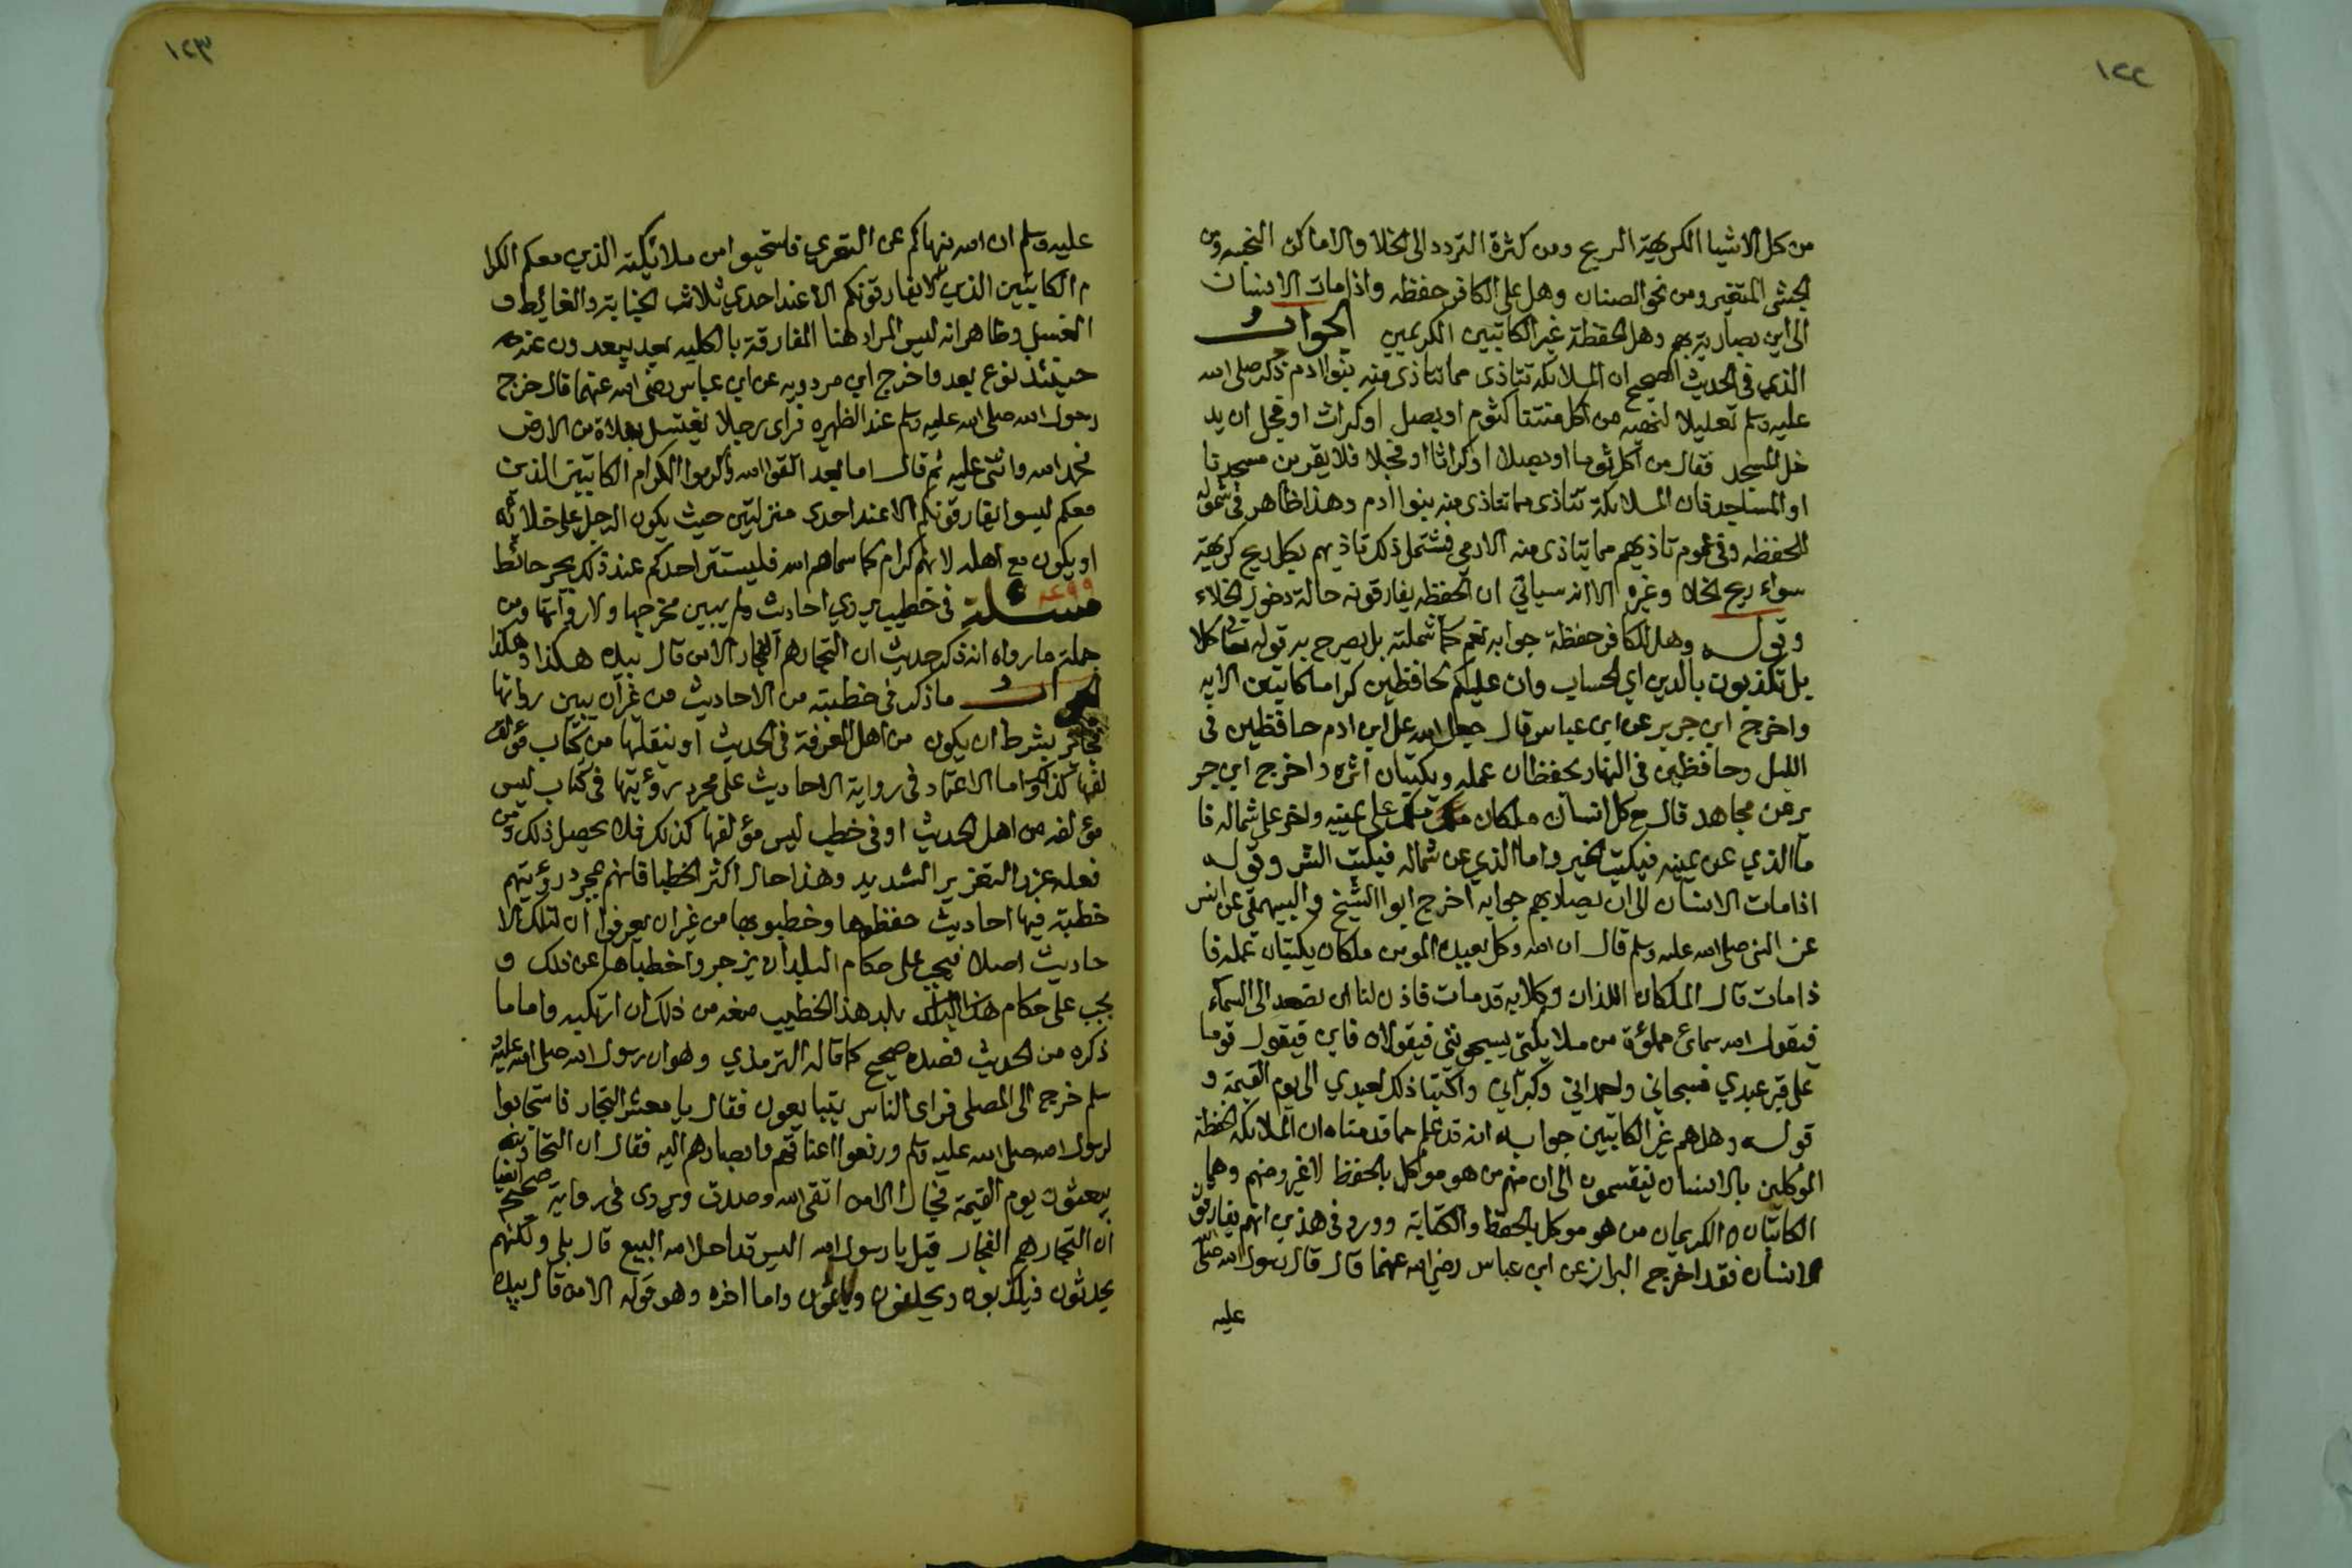 ١٢٢
من كل الاشيا الكريهة الريح ومن كثرة التردد الى الخلا والاماكن النجسه ومن
الجشى المتغير ومن نحو الصنان وهل على الكافر حفظه واذا مات الانسان
الى اين يصار بهم وهل الحفظة غير الكاتبين الكريمين الجواب
الذي في الحديث الصحيح ان الملايكة تتاذى مما تتاذى منه بنوا ادم ذكر صلى الله
عليه وسلم تعليلا لنهيه من اكل منتنا كثوم او بصل او كراث او فجل ان يد
خل المسجد فقال من اكل ثوما او بصلا او كراثا او فجلا فلا يقربن مسجدنا
او المساجد فان الملايكة تتاذى مما تتاذى منه بنوا ادم وهذا ظاهر في شموله
للحفظه وفي عموم تاذيهم مما يتاذى منه الادمي فشتمل ذلك تاذيهم بكل ريح كريهة
سواء ريح الخلا وغيره الا انه سياتي ان الحفظه يفارقونه حالة دخول الخلاء
وقوله وهل للكافر حفظة جوابه نعم كما شملته بل يصرح به قوله تعا كلا
بل تكذبون بالدين اي الحساب وان عليكم لحافظين كراما كاتبين الايه
واخرج ابن جرير عن ابن عباس قال جعل الله على ابن ادم حافظين في
الليل وحافظين في النهار يحفظان عمله ويكتبان اثره واخرج ابن جر
ير عن مجاهد قال مع كل انسان ملكان ملك على يمينه واخر على شماله فا
ما الذي عن يمينه فيكتب الخير واما الذي عن شماله فيكتب الشر وقوله
اذا مات الانسان الى ان يصار بهم جوابه اخرج ابوا الشيخ والبيهقي عن انس
عن النبي صلى الله عليه وسلم قال ان الله وكل بعبده المومن ملكان يكتبان عمله فا
ذا مات قال الملكان اللذان وكلا به قد مات فاذن لنا ان نصعد الى السمآء
فيقول الله سمائ مملؤة من ملايكتي يسبحونني فيقولان فاين فيقول قوما
على قبر عبدي فسبحاني واحمداني وكبراني واكتبا ذلك لعبدي الى يوم القيمة و
قوله وهل هم غير الكاتبين جوابه انه قد علم مما قدمناه ان الملايكة الحفظة
الموكلين بالانسان ينقسمون الى ان منهم من هو موكل بالحفظ لا غير ومنهم وهما
الكاتبان الكريمان من هو موكل بالحفظ والكتابة وورد في هذين انهم يفارقون
الانسان فقد اخرج البزار عن ابن عباس رضي الله عنهما قال قال رسول الله صلى
عليه
١٢٣
عليه وسلم ان الله ينهاكم عن التعري فاستحيوا من ملائكته الذين معكم الكرا
م الكاتبين الذين لا يفارقونكم الا عند احدى ثلاث الجنابة والغائط و
الغسل وظاهر انه ليس المراد هنا المفارقة بالكليه بعد يبعدون عنه
حينئذ نوع بعد واخرج ابن مردويه عن ابن عباس رضي الله عنهما قال خرج
رسول الله صلى الله عليه وسلم عند الظهيره فراى رجلا يغتسل بفلاة من الارض
فحمد الله واثنى عليه ثم قال اما بعد اتقوا الله واكرموا الكرام الكاتبين الذين
معكم ليسوا يفارقونكم الا عند احدى منزلتين حيث يكون الرجل على خلائه
او يكون مع اهله لانهم كرام كما سماهم الله فليستتر احدكم عند ذلك بجرم حائط
مسئلة في خطيب يروي احاديث ولم يبين مخرجها ولا رواتها ومن
جملة ما رواه انه ذكر حديث ان التجار هم الفجار الا من قال بيده هكذا وهكذا
الجواب ما ذكر في خطبته من الاحاديث من غير ان يبين رواتها
فجائز بشرط ان يكون من اهل المعرفة في الحديث او ينقلها من كتاب مؤ
لفها كذلك واما الاعتماد في رواية الاحاديث على مجرد رؤيتها في كتاب ليس
مؤلفه من اهل الحديث او في خطب ليس مؤلفها كذلك فلا يحصل ذلك ومن
فعله عزر التعزير الشديد وهذا حال اكثر الخطبا فانهم بمجرد رؤيتهم
خطبة فيها احاديث حفظوها وخطبوا بها من غير ان يعرفوا ان لتلك الا
حاديث اصلا فيجب على حكام البلد ان يزجروا خطباها عن ذلك و
يجب على حكام بلد هذا الخطيب منعه من ذلك ان ارتكبه واما ما
ذكره من الحديث فصدره صحيح كما قاله الترمذي وهو ان رسول الله صلى الله عليه و
سلم خرج الى المصلى فراى الناس يتبايعون فقال يا معشر التجار فاستجابوا
لرسول الله صلى الله عليه وسلم ورفعوا اعناقهم وابصارهم اليه فقال ان التجار
يبعثون يوم القيمة فجارا الا من اتقى الله وصدق ويروى في رواية صحيحة ايضا
ان التجار هم الفجار قيل يا رسول الله اليس قد احل الله البيع قال بلى ولكنهم
يحدثون فيكذبون ويحلفون وياثمون واما اخره وهو قوله الا من قال بيده